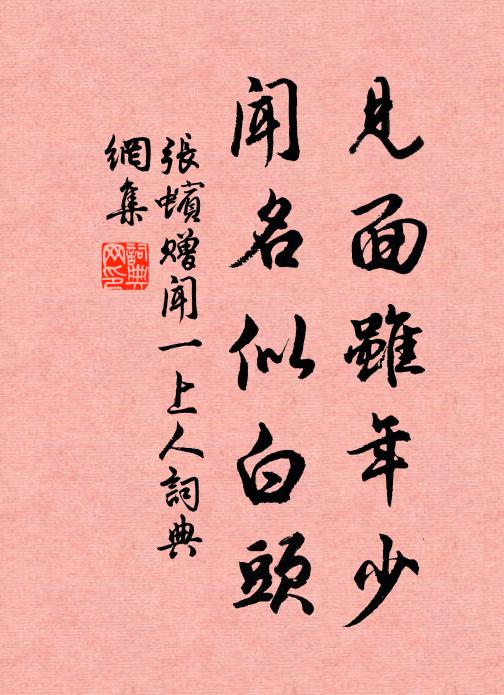 見面雖年少
聞名似白頭
張蠙贈聞一上人詞典
網集
詞典
网印